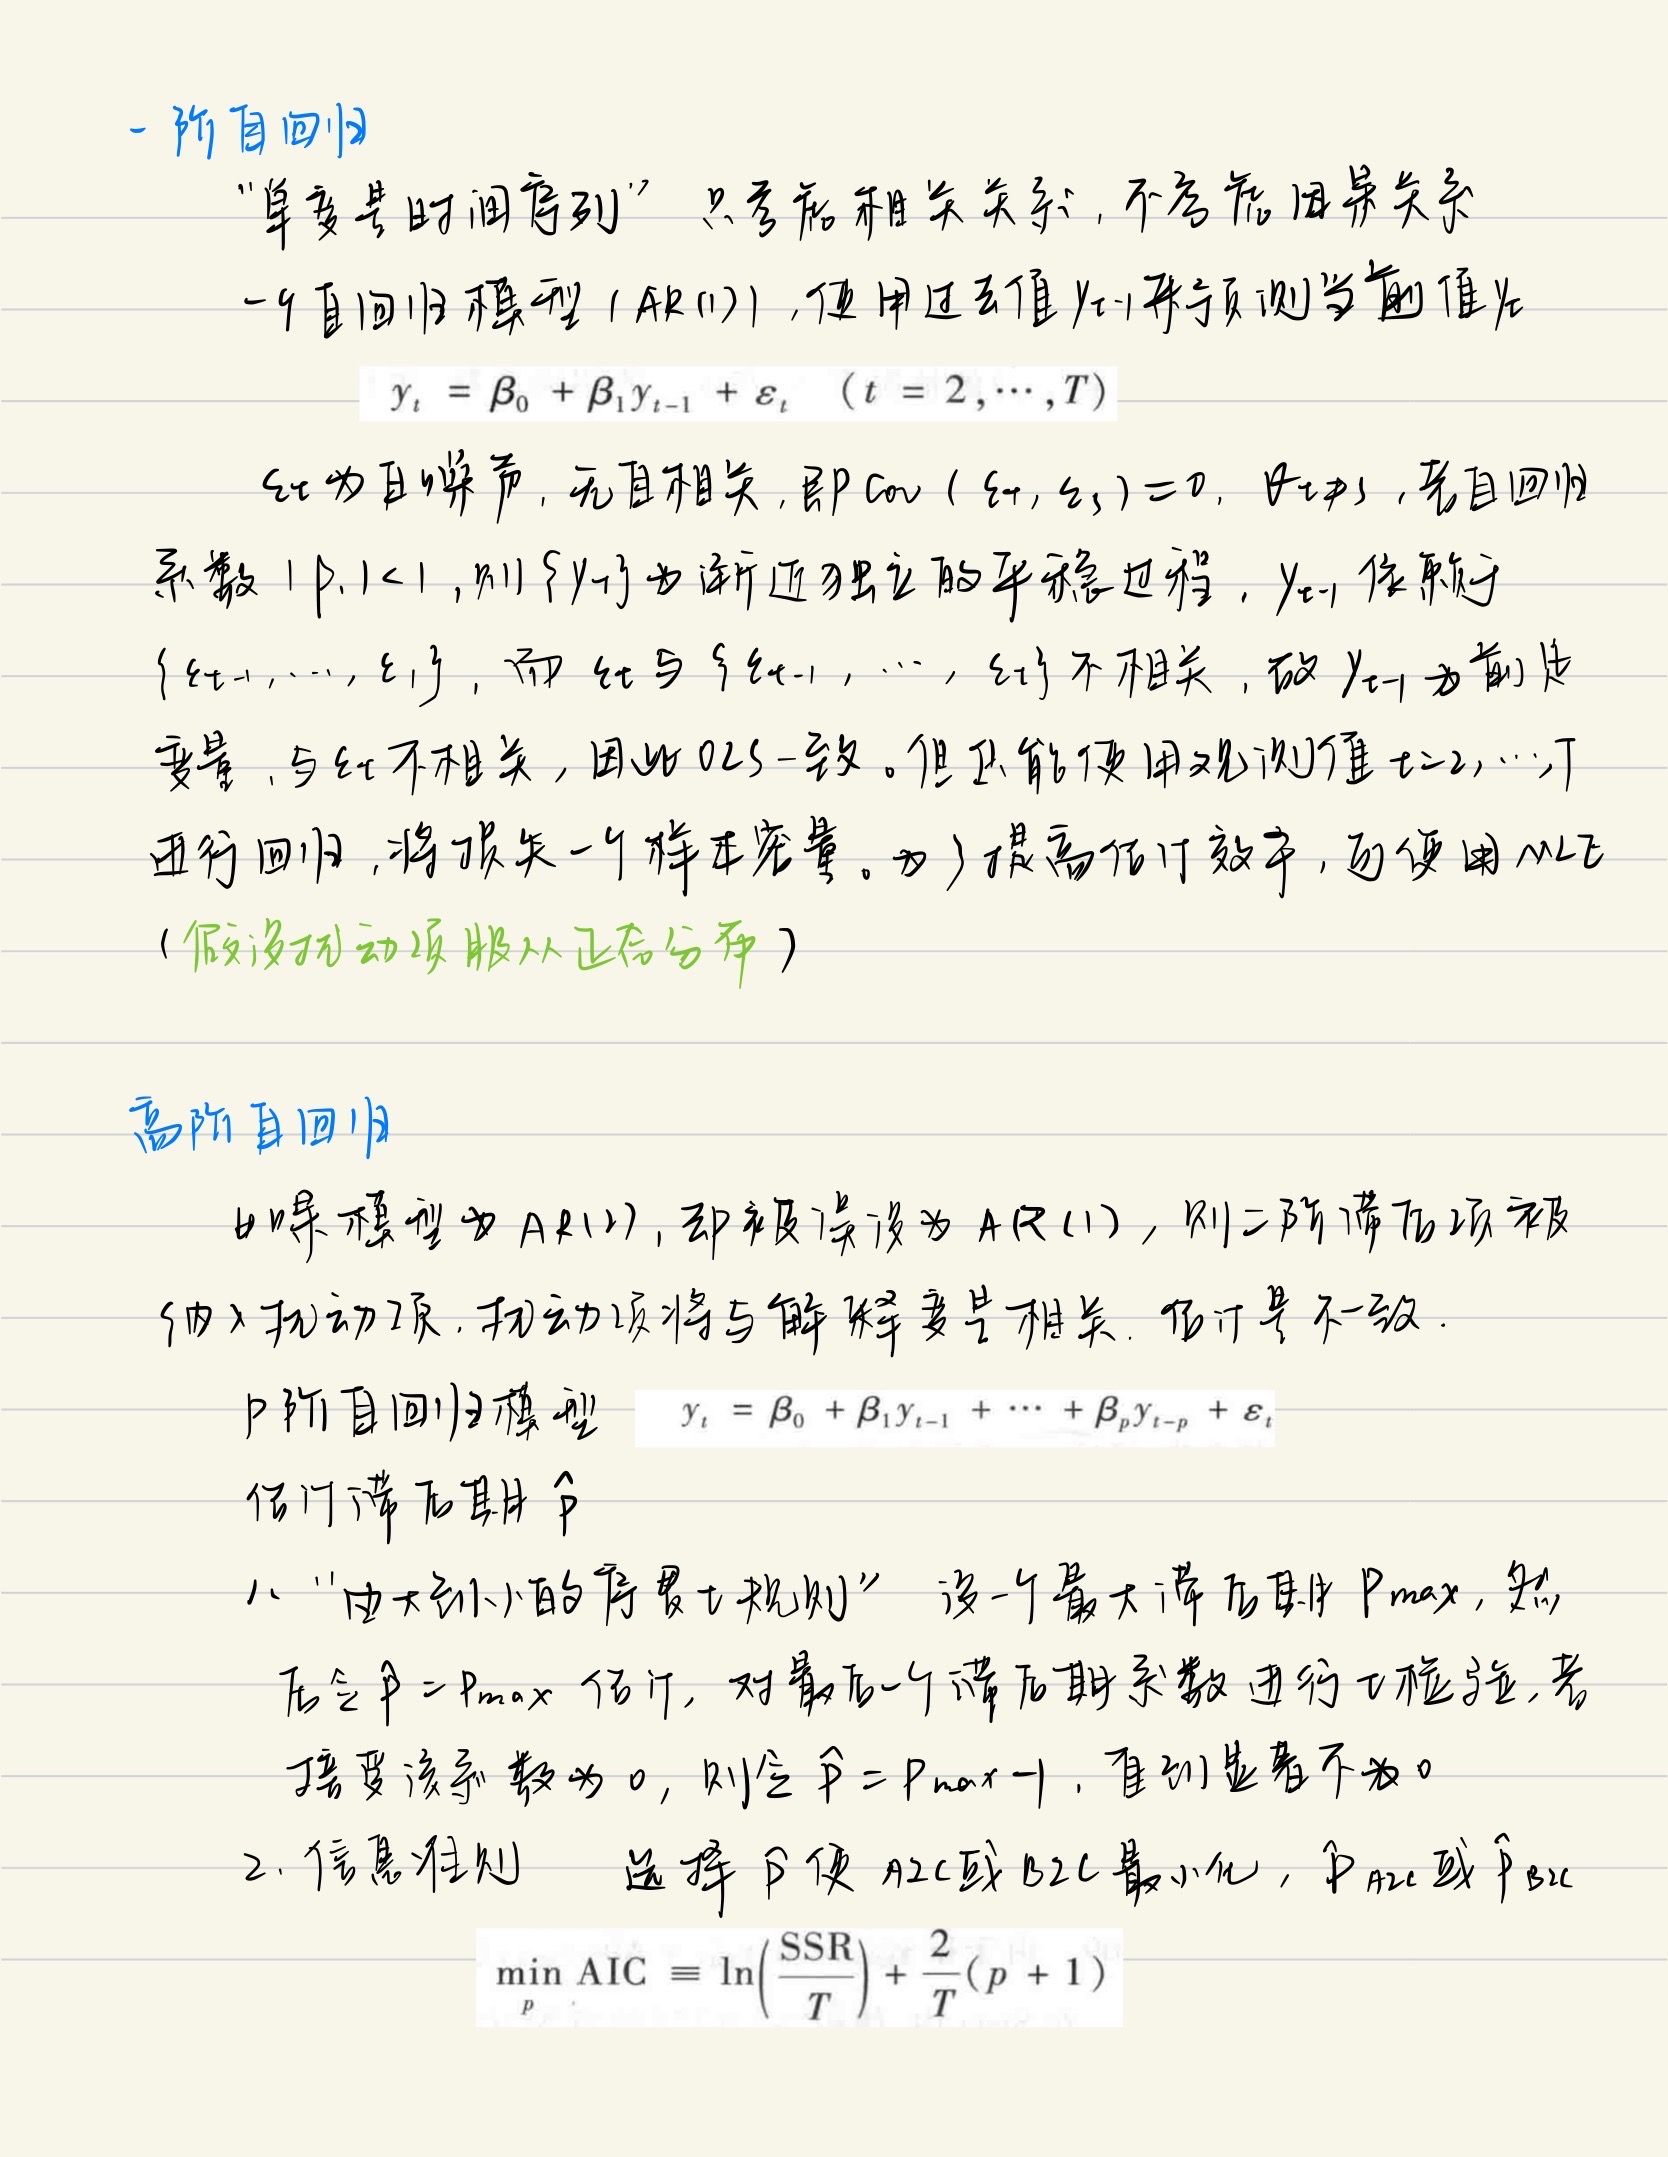 一阶自回归
“单变量时间序列” 只考虑相关关系，不考虑因果关系
一个自回归模型（AR(1)），使用过去值 yt-1 来预测当前值 yt
yt = β0 + β1yt-1 + εt （t = 2,⋯,T）
εt 为白噪声，无自相关，即 Cov（εt, εs）=0，∀t≠s，若自回归
系数 |β1|<1，则 {yt} 为渐近独立的平稳过程，yt-1 依赖于
{εt-1,⋯, ε1}，而 εt 与 {εt-1,⋯, ε1} 不相关，故 yt-1 为前定
变量，与 εt 不相关，因此 OLS 一致。但只能使用观测值 t=2,⋯,T
进行回归，将损失一个样本容量。为了提高估计效率，可使用 MLE
（假设扰动项服从正态分布）
高阶自回归
如果模型为 AR(2)，却被误设为 AR(1)，则二阶滞后项被
纳入扰动项，扰动项将与解释变量相关，估计量不一致.
p 阶自回归模型 yt = β0 + β1yt-1 + ⋯ + βpyt-p + εt
估计滞后期 p̂
1、“由大到小的序贯 t 规则” 设一个最大滞后期 Pmax，然
后令 p̂ = Pmax 估计，对最后一个滞后期系数进行 t 检验，若
接受该系数为 0，则令 p̂ = Pmax-1，直到显著不为 0
2. 信息准则 选择 p̂ 使 AIC 或 BIC 最小化，p̂AIC 或 p̂BIC
min p AIC ≡ ln(SSR/T) + 2/T(p + 1)